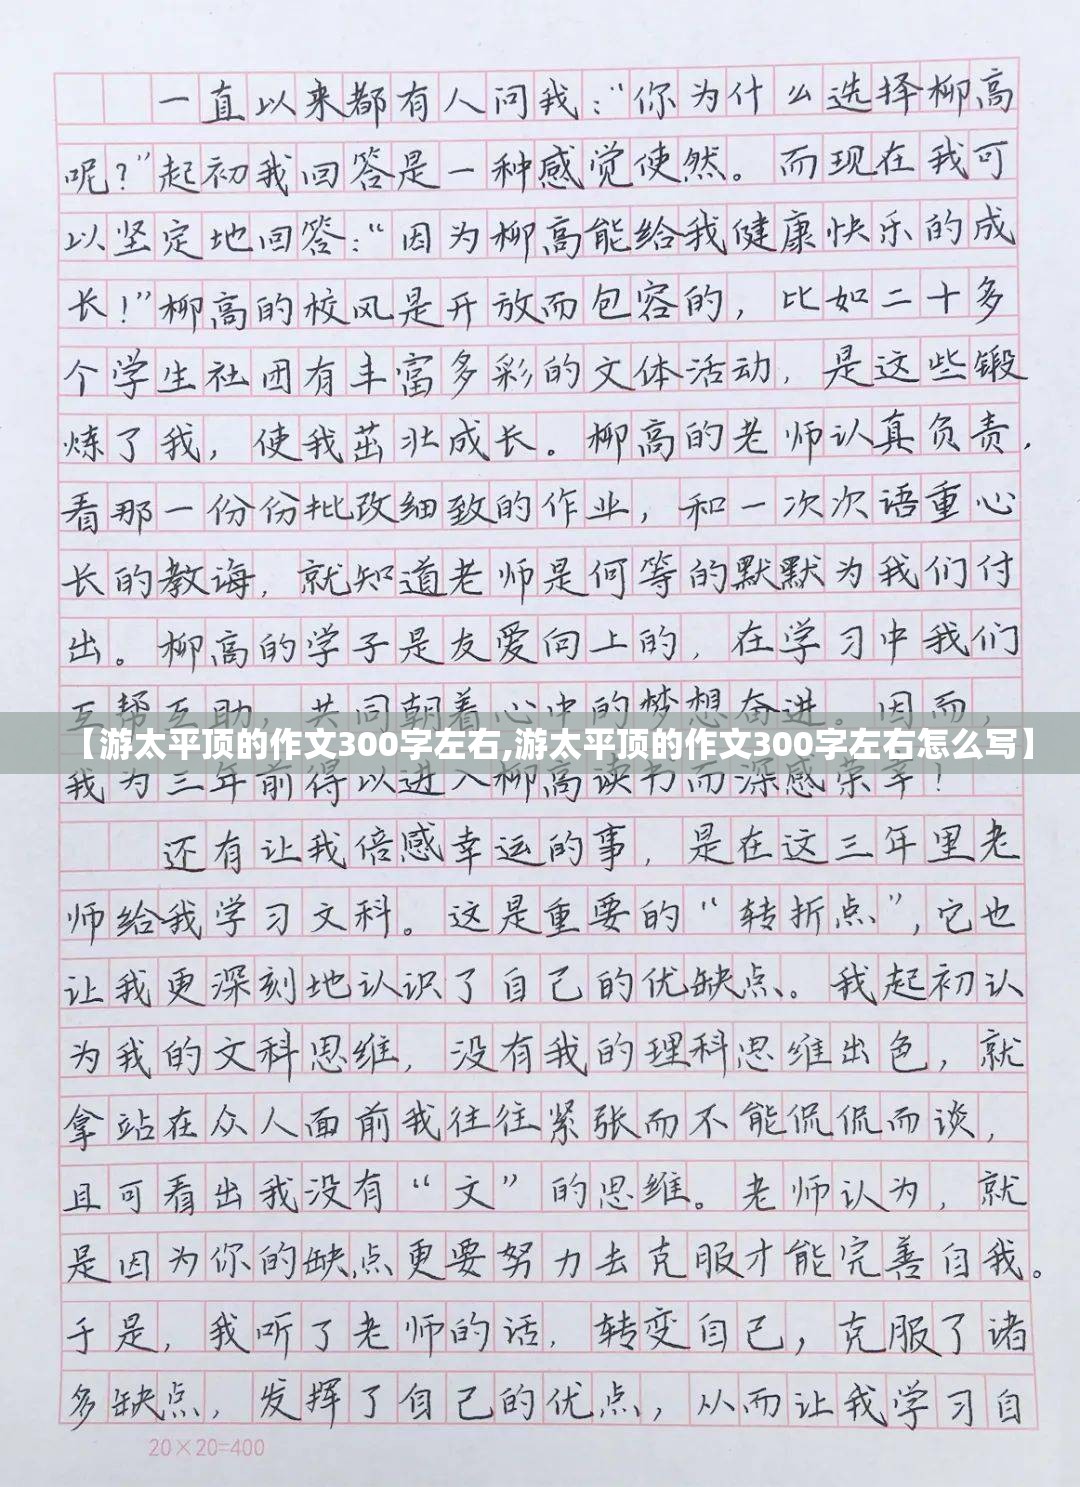 一直以来都有人问我：“你为什么选择柳高
呢？”起初我回答是一种感觉使然。而现在我可
以坚定地回答：“因为柳高能给我健康快乐的成
长！”柳高的校风是开放而包容的，比如二十多
个学生社团有丰富多彩的文体活动，是这些锻
炼了我，使我茁壮成长。柳高的老师认真负责，
看那一份份批改细致的作业，和一次次语重心
长的教诲，就知道老师是何等的默默为我们付
出。柳高的学子是友爱向上的，在学习中我们
互帮互助，共同朝着心中的梦想奋进。因而，
【游太平顶的作文300字左右,游太平顶的作文300字左右怎么写】
我为三年前得以进入柳高读书而深感荣幸！
还有让我倍感幸运的事，是在这三年里老
师给我学习文科。这是重要的“转折点”，它也
让我更深刻地认识了自己的优缺点。我起初认
为我的文科思维，没有我的理科思维出色，就
拿站在众人面前我往往紧张而不能侃侃而谈，
且可看出我没有“文”的思维。老师认为，就
是因为你的缺点更要努力去克服才能完善自我。
于是，我听了老师的话，转变自己，克服了诸
多缺点，发挥了自己的优点，从而让我学习自
20×20=400